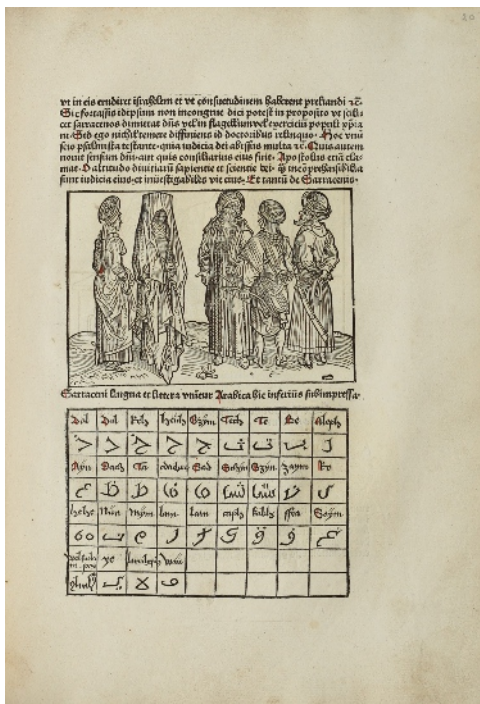 vt in eis erudiret israhelem et vt consuetudinem haberent preliandi ⁊c̄.
Sic fortassis idipsum non incongrue dici potest in proposito vt scili
cet sarracenos dimittat dn̄s vel in flagellum vel exercicium populi xp̄ia
ni. Sed ego nichil temere diffiniens id doctoribus relinquo. Hoc vnū
scio psalmista testante. quia iudicia dei abissus multa ⁊c̄. Quis autem
nouit sensum dn̄i. aut quis consiliarius eius fuit. Apostolus etiā cla
mat. O altitudo diuitiarū sapientie et scientie dei. q̄ incōprehensibilia
sunt iudicia eius. et inuestigabiles vie eius. Et tantū de Sarracenis.
Sarraceni lingua et littera vtuntur Arabica hic inferius subimpressa.
Dal Dal Hech Gym Tech Te Be Aleph
د د خ ح ج ث ت ب ا
Ayn Dach Ta Sad Schyn Szyn Zaym Re
ع ظ ط ض ص ش س ز ر
hehe Nun Mym lam caph kabh ffea Gaym
ه ن م ل ك ق ف غ
ye lameleph wau
ي لا و